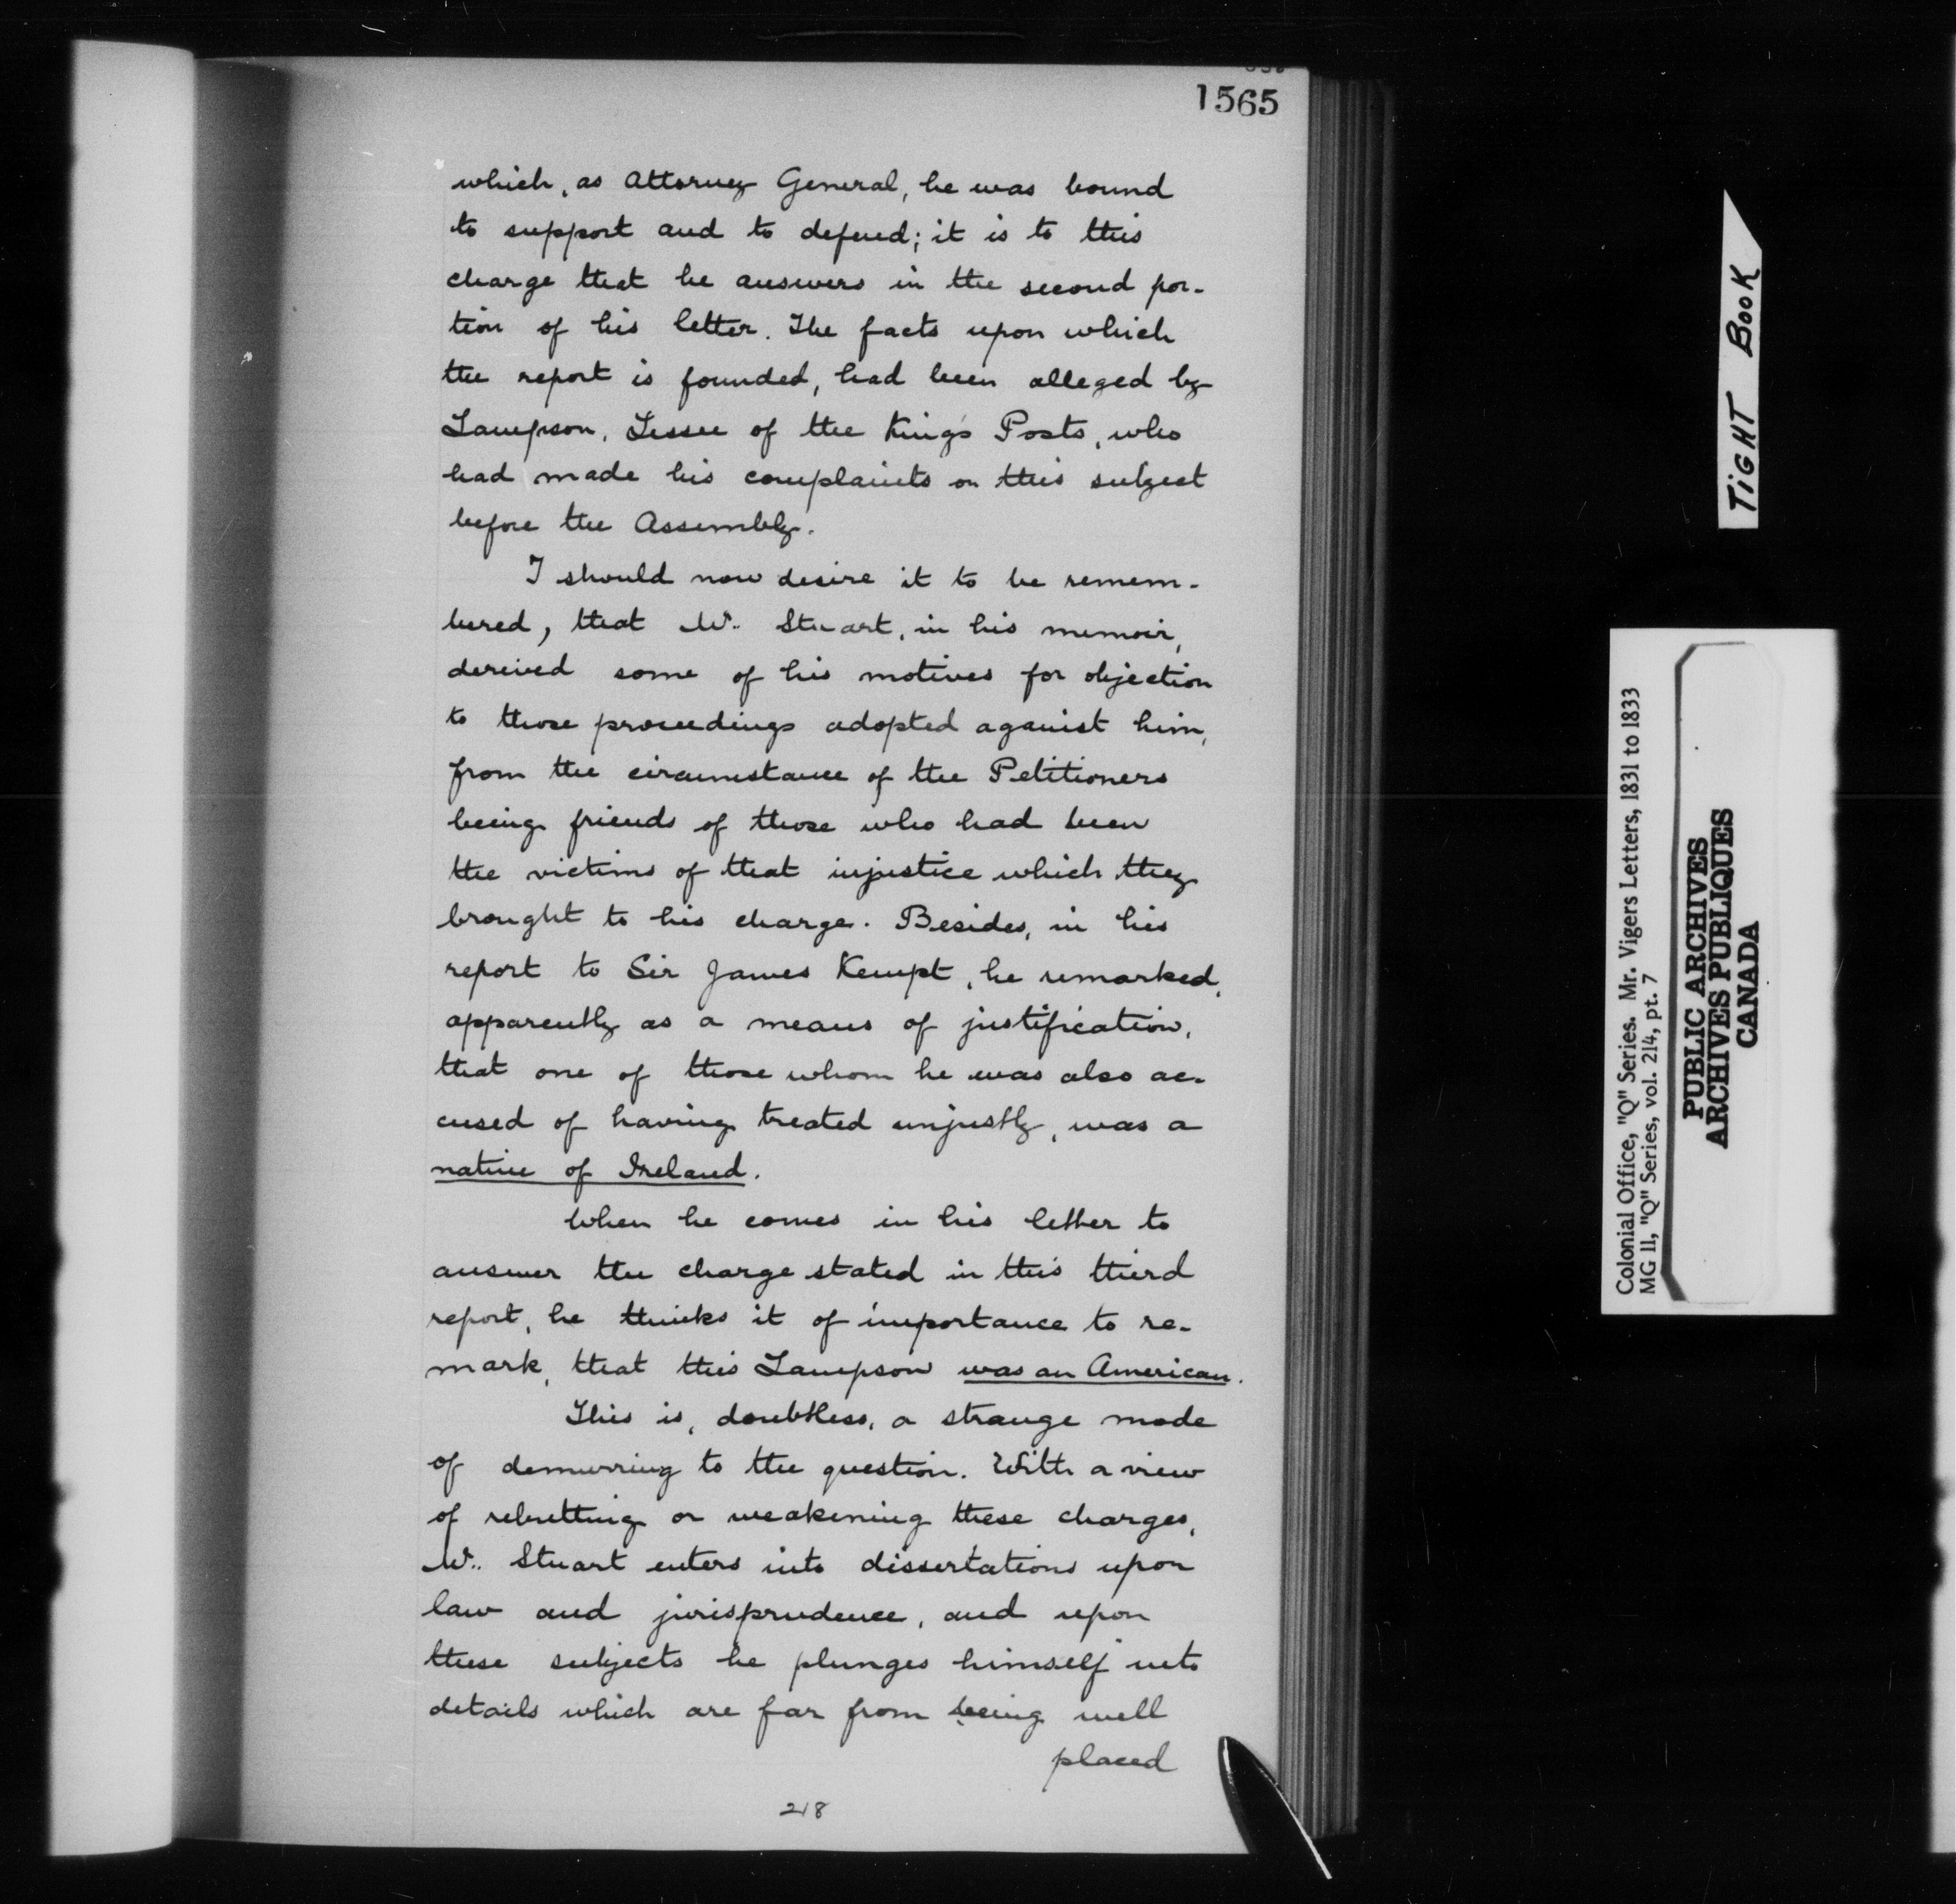 1565
which, as Attorney General, he was bound
to support and to defend; it is to this
charge that he answers in the second por-
tion of his letter. The facts upon which
the report is founded, had been alleged by
Lampson, Lessee of the King's Posts, who
had made his complaints on this subject
before the Assembly.
I should now desire it to be remem-
bered, that Mr. Stuart, in his memoir,
derived some of his motives for objection
to those proceedings adopted against him,
from the circumstance of the Petitioners
being friends of those who had been
the victims of that injustice which they
brought to his charge. Besides, in his
report to Sir James Kempt, he remarked,
apparently as a means of justification,
that one of those whom he was also ac-
cused of having treated unjustly, was a
native of Ireland.
When he comes in his letter to
answer the charge stated in this third
report, he thinks it of importance to re-
mark, that this Lampson was an American.
This is, doubtless, a strange mode
of demurring to the question. With a view
of rebutting or weakening these charges,
Mr. Stuart enters into dissertations upon
law and jurisprudence, and upon
these subjects he plunges himself into
details which are far from being well
placed
218
TIGHT BOOK
Colonial Office, "Q" Series. Mr. Vigers Letters, 1831 to 1833
MG 11, "Q" Series, vol. 214, pt. 7
PUBLIC ARCHIVES
ARCHIVES PUBLIQUES
CANADA